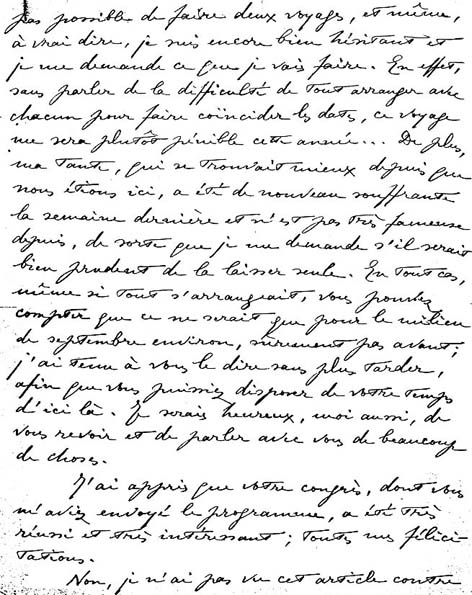 pas possible de faire deux voyages, et même,
à vrai dire, je suis encore bien hésitant et
je me demande ce que je vais faire. En effet,
sans parler de la difficulté de tout arranger avec
chacun pour faire coïncider les dates, ce voyage
me sera plutôt pénible cette année... De plus,
ma tante, qui se trouvait mieux depuis que
nous étions ici, a été de nouveau souffrante
la semaine dernière et n'est pas très fameuse
depuis, de sorte que je me demande s'il serait
bien prudent de la laisser seule. En tout cas,
même si tout s'arrangeait, vous pouvez
compter que ce ne serait que pour le milieu
de septembre environ, sûrement pas avant;
j'ai tenu à vous le dire sans plus tarder,
afin que vous puissiez disposer de votre temps
d'ici là. Je serais heureux, moi aussi, de
vous revoir et de parler avec vous de beaucoup
de choses.
J'ai appris que votre congrès, dont vous
m'aviez envoyé le programme, a été très
réussi et très intéressant; toutes mes félici-
tations.
Non, je n'ai pas vu cet article contre